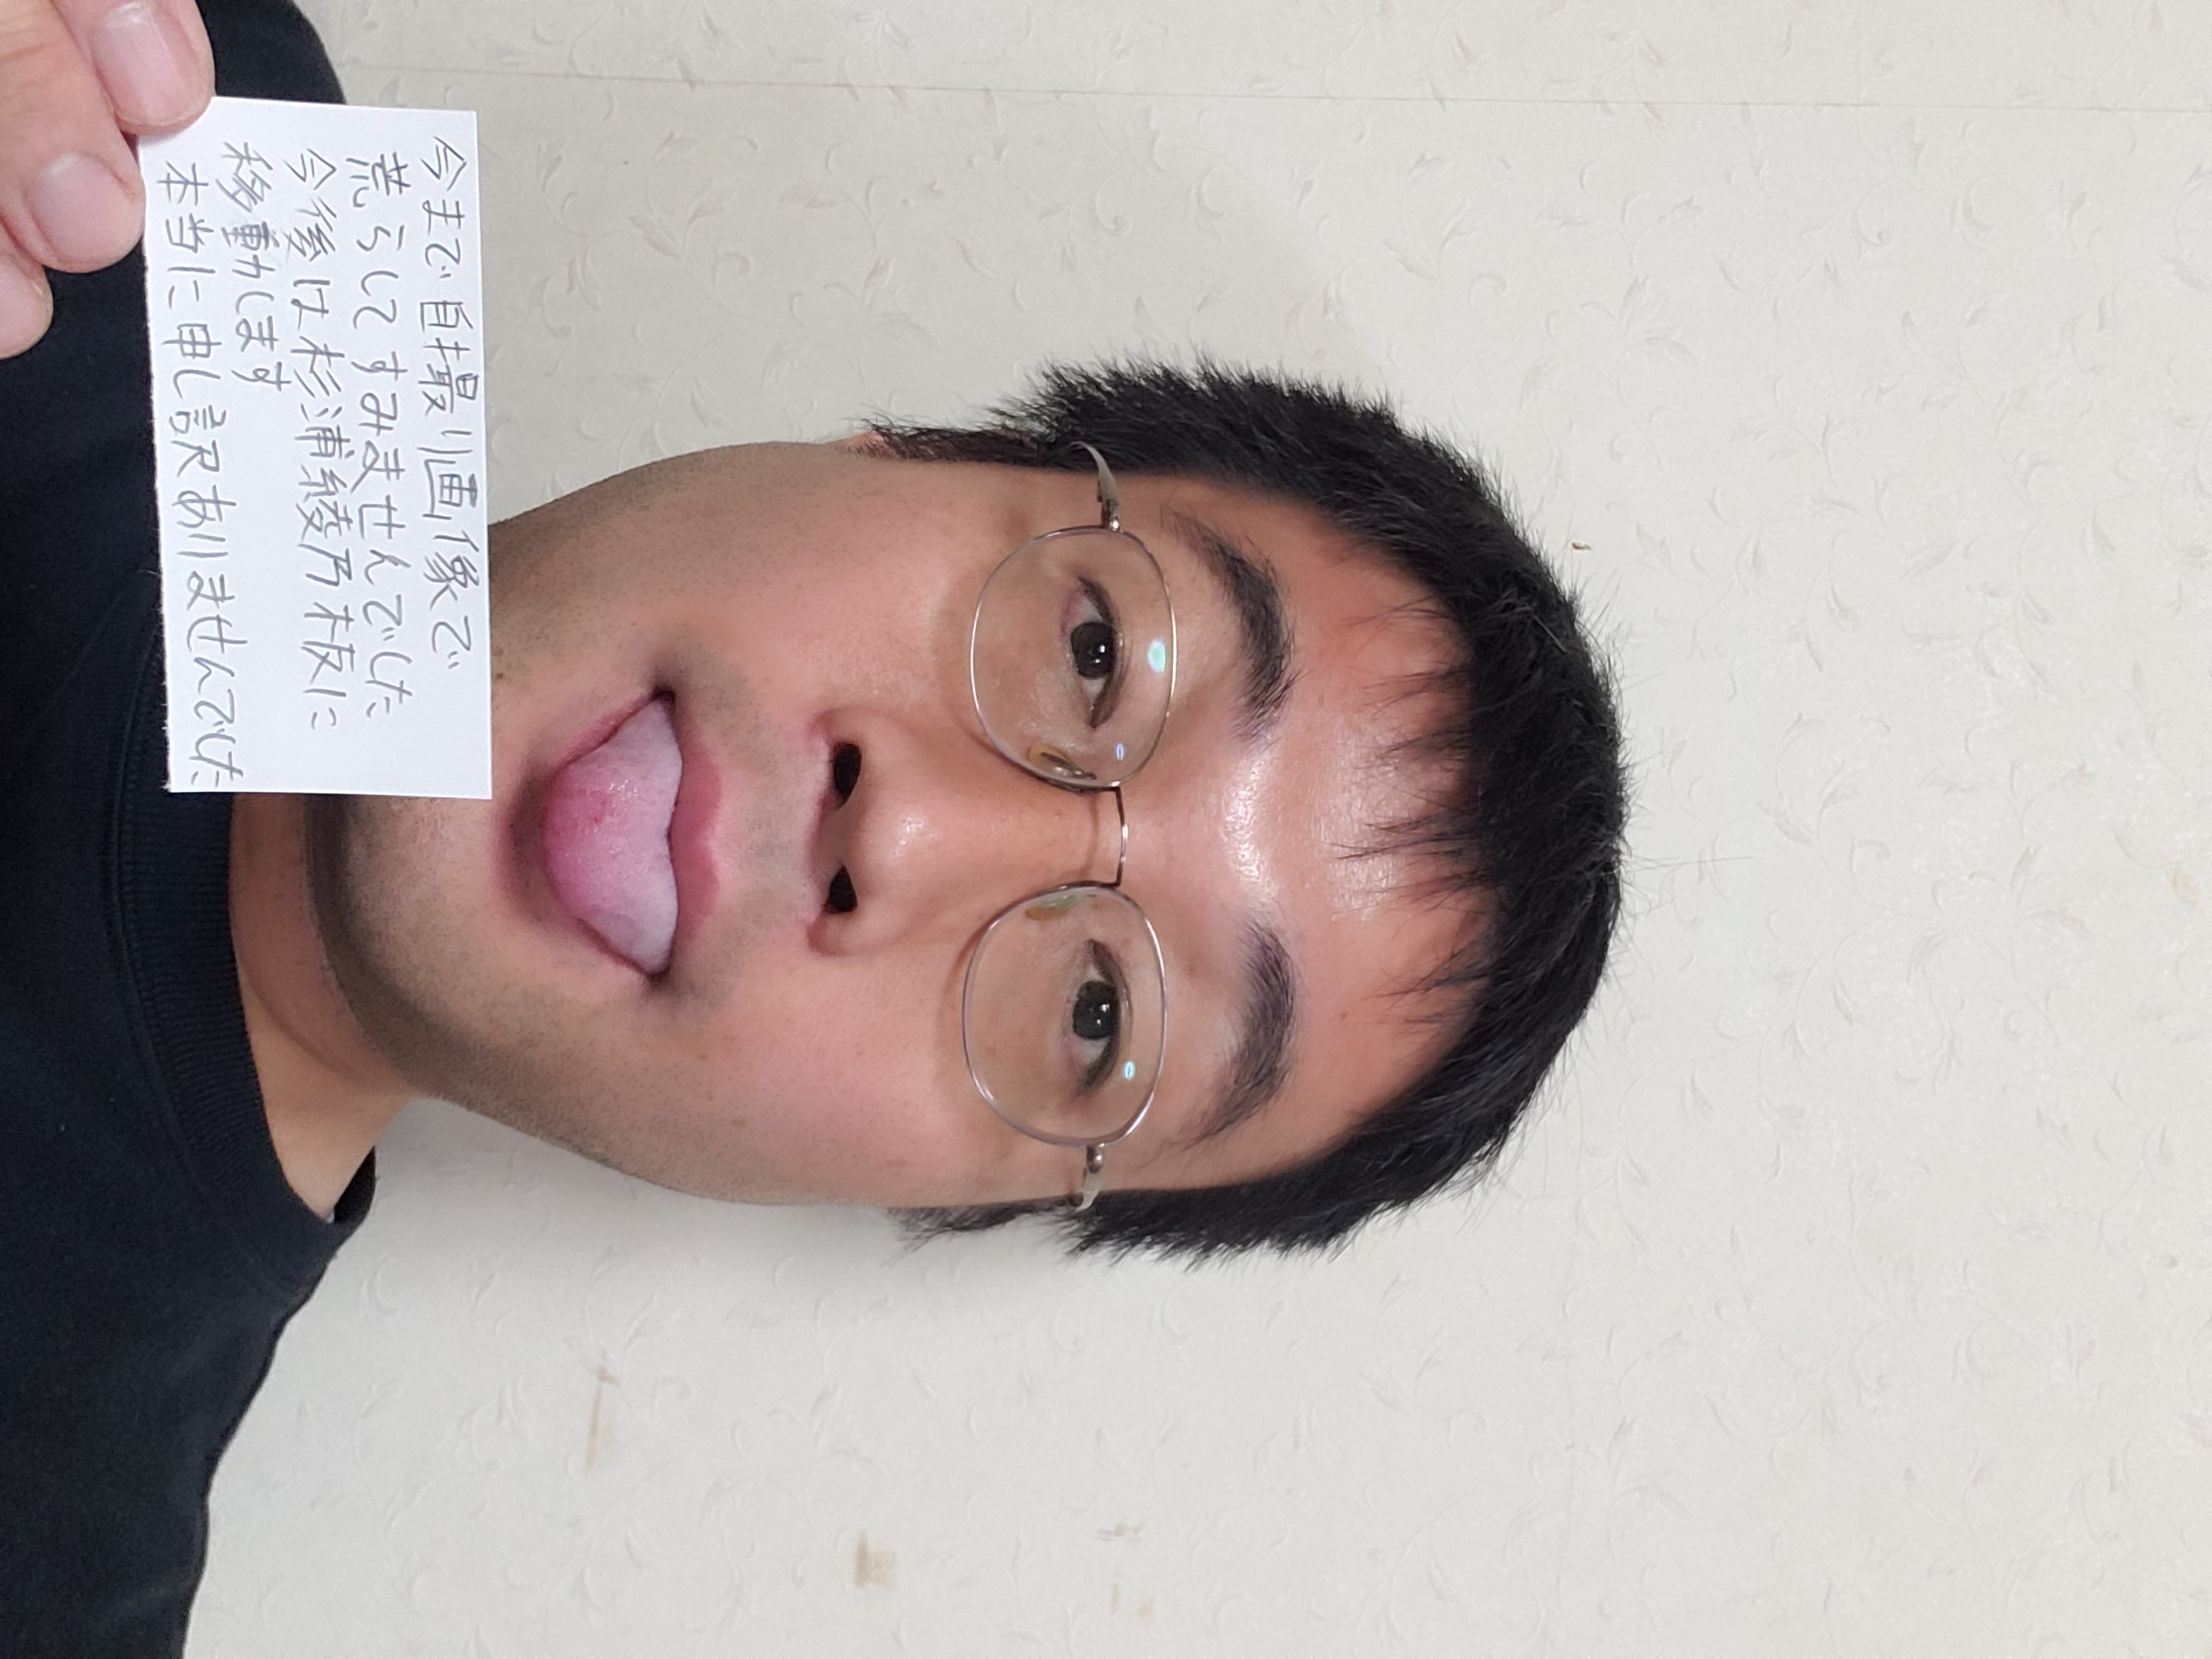 今まで自撮り画像で
荒らしてすみませんでした
今後は杉浦綾乃板に
移動します
本当に申し訳ありませんでした